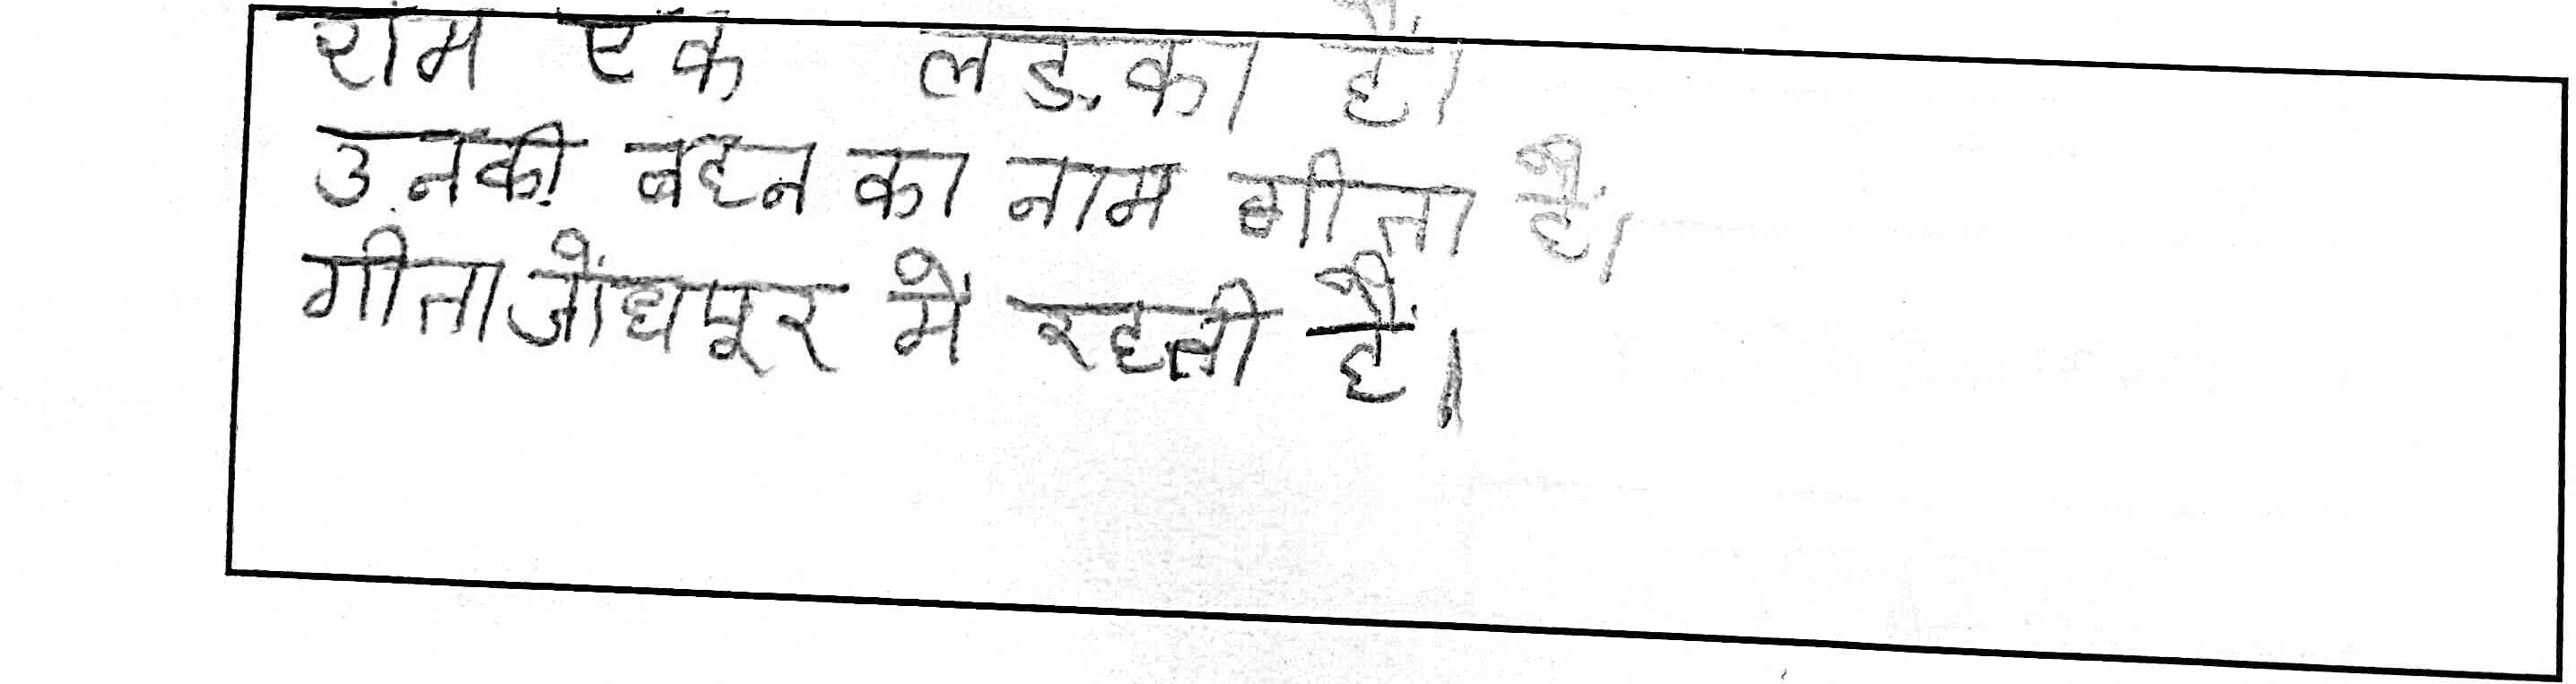 राम एक लड़का हैं।
उनकी बहन का नाम गीता हैं।
गीता जोंधपूर में रहती हैं।